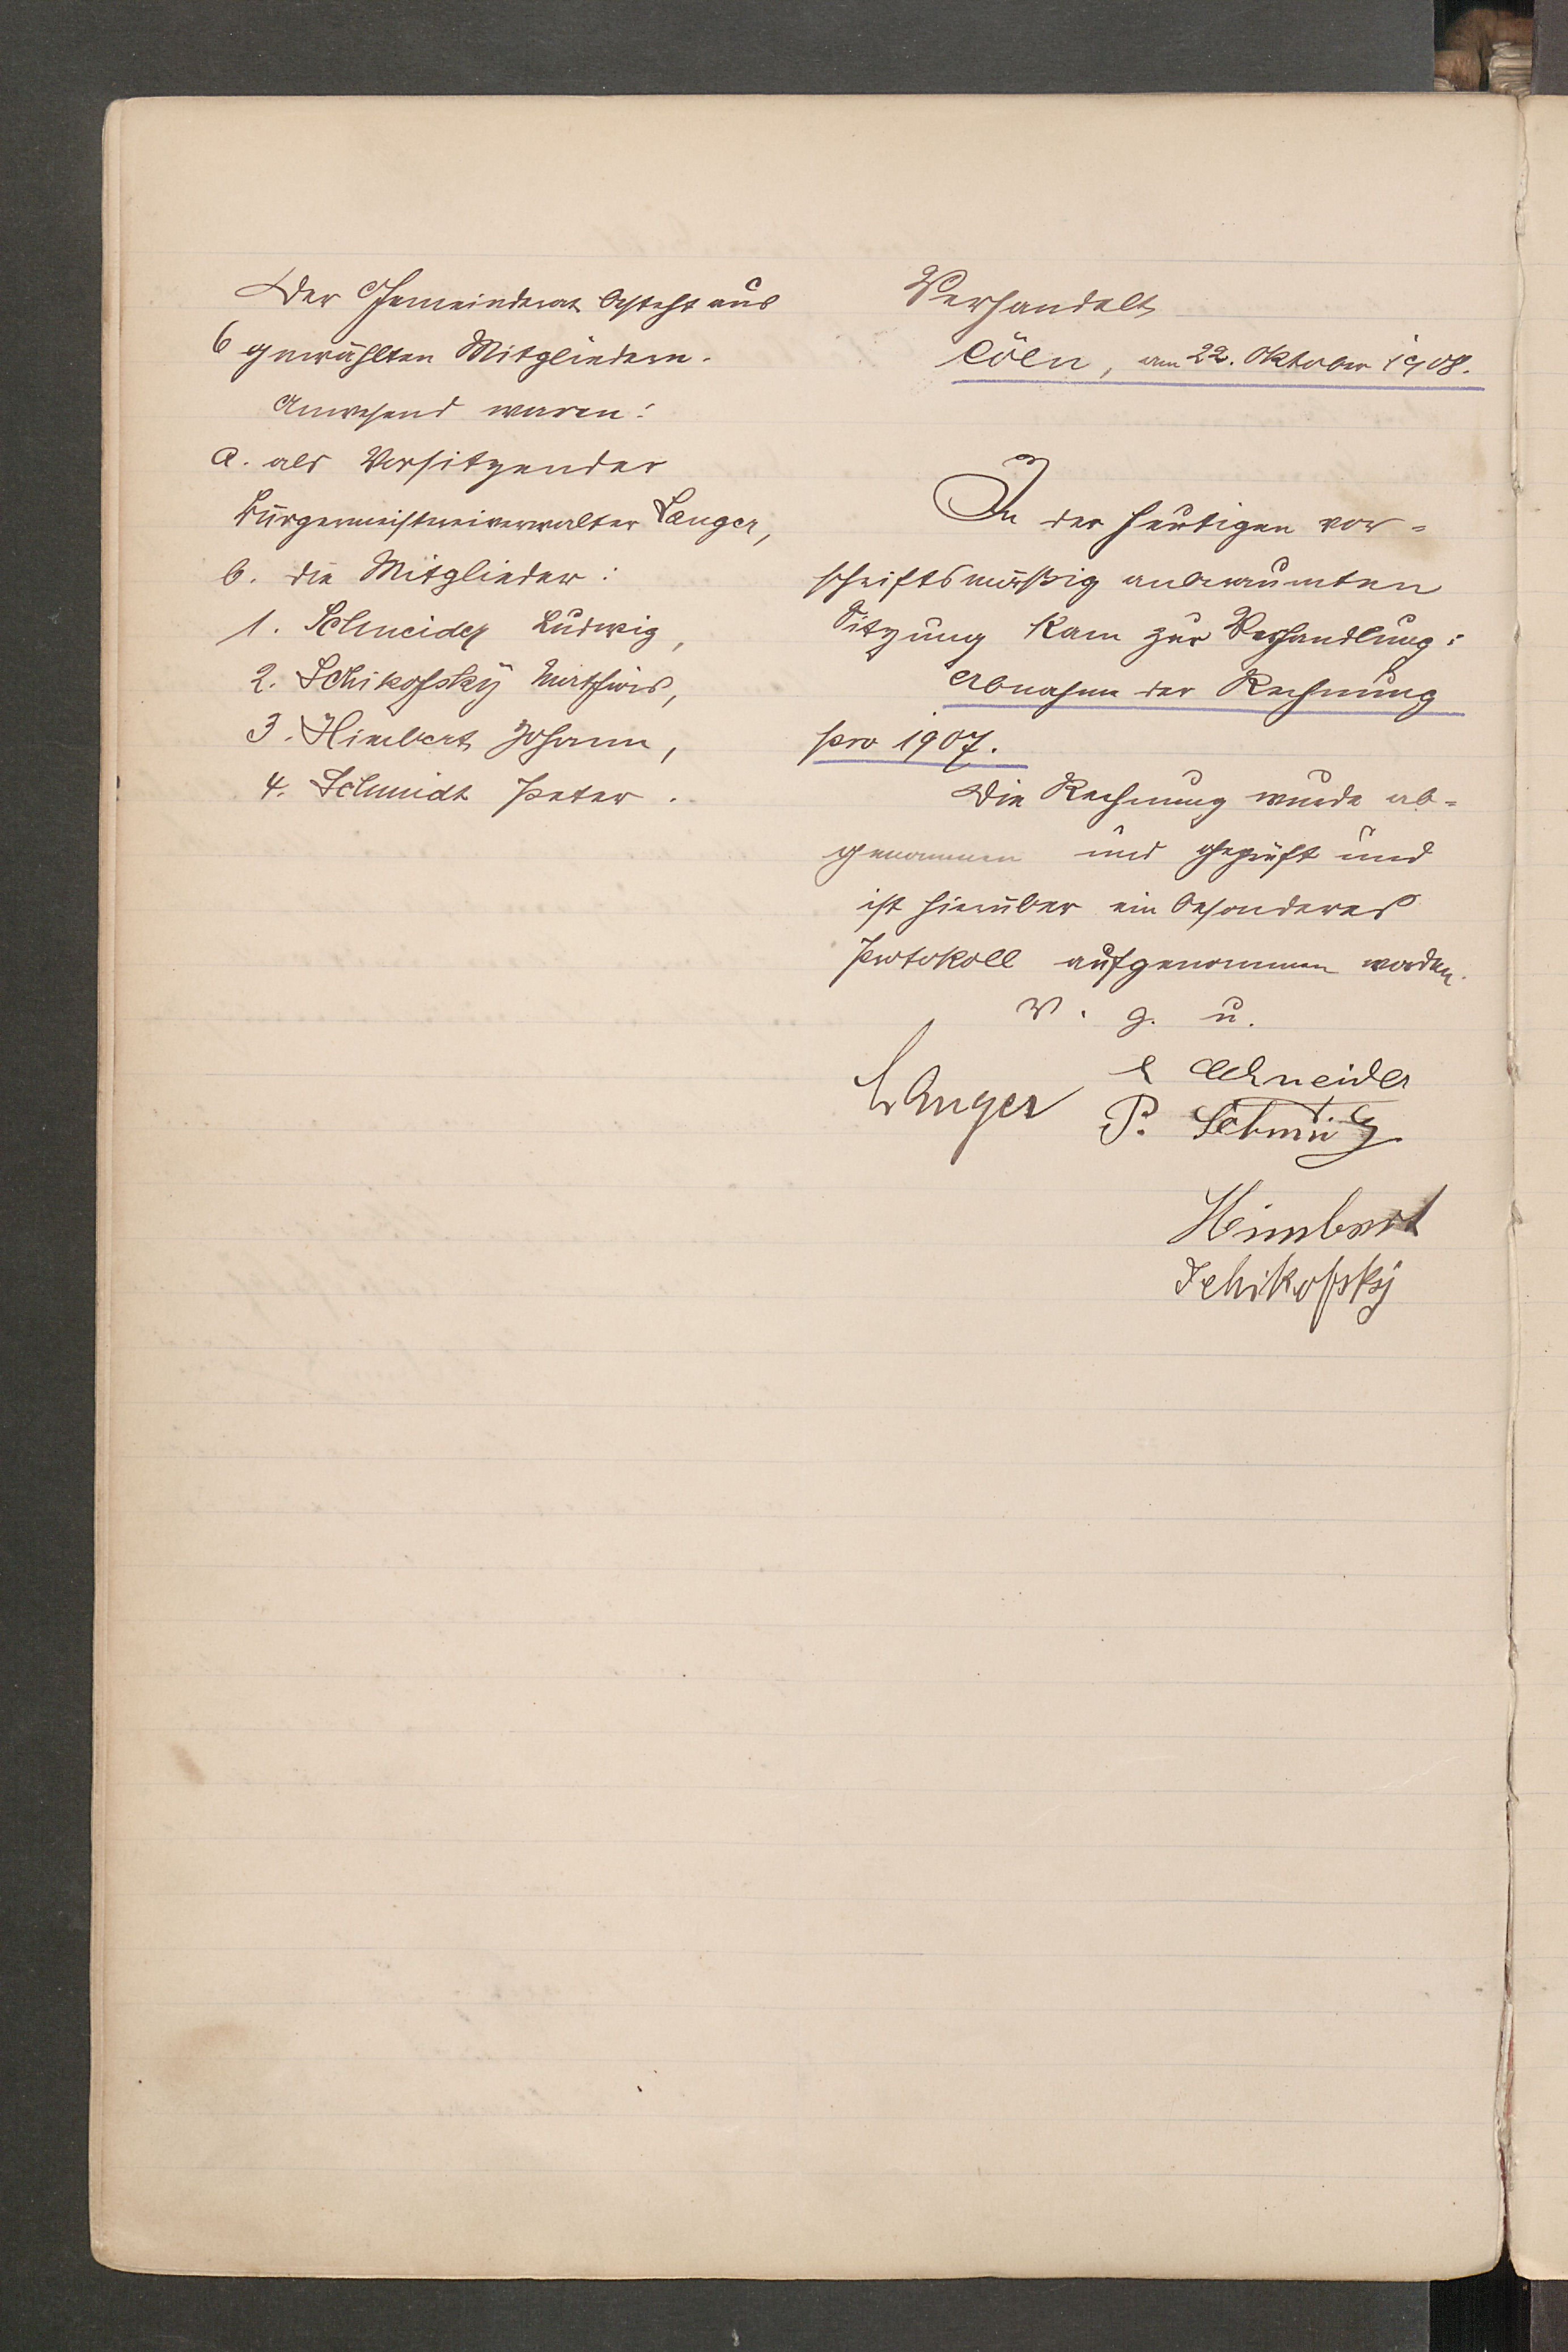 Der Gemeinderat besteht aus
6 gewählten Mitgliedern.
Anwesend waren:
a. als Vorsitzender
Bürgermeistereiverwalter Langer,
b. die Mitglieder:
1. Schneider Ludwig,
2. Schikofsky Mathias,
3. Himbert Johann,
4. Schmidt Peter.
Verhandelt
Cöln, am 22. Oktober 1908.
In der heutigen vor-
schriftsmäßig anberaumten
Sitzung kam zur Verhandlung:
Abnahme der Rechnung
pro 1907.
Die Rechnung wurde ab-
genommen und geprüft und
ist hierüber ein besonderes
Protokoll aufgenommen worden.
v. g. u.
Langer
L Schneider
P. Schmitz
Himbert
Schikofsky